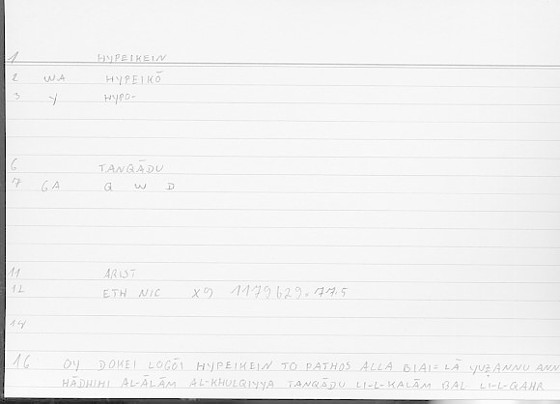 1 HYPEIKEIN
2 WA HYPEIKŌ
3 Y HYPO-
6 TANQĀDU
7 GA Q W D
11 ARIST
12 ETH NIC X9 1179b29.77.5
14
16 OY DOKEI LOGŌI HYPEIKEIN TO PATHOS ALLA BIAI = LĀ YUẒANNU ANN
HĀDHIHI AL-ĀLĀM AL-KHULQIYYA TANQĀDU LI-L-KALĀM BAL LI-L-QAHR